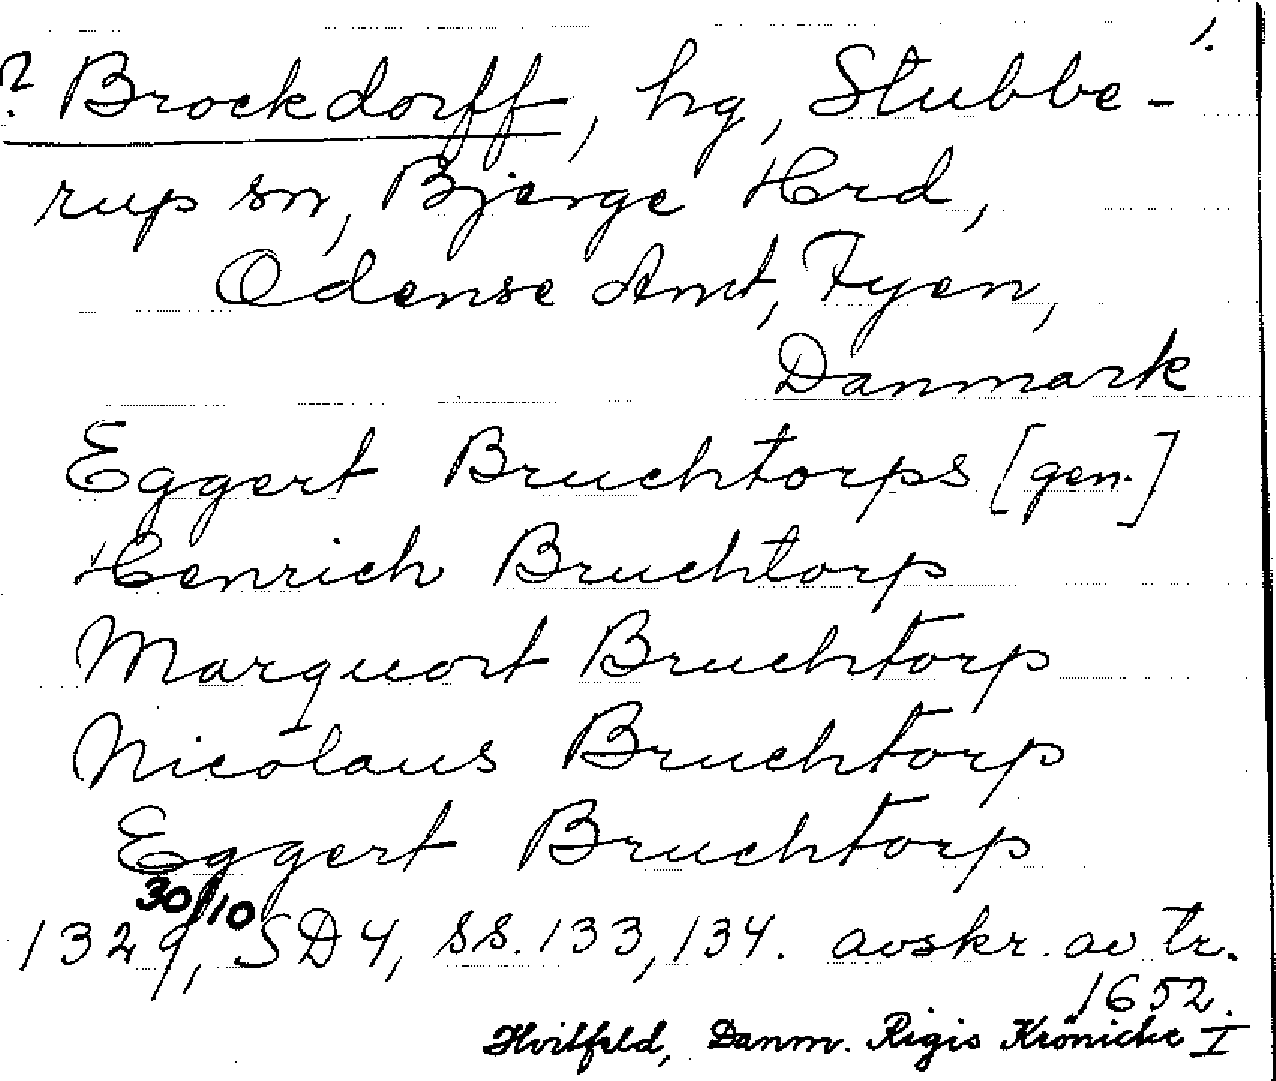 1.
? Brockdorff, hg, Stubbe-
rup sn, Bjerge Hrd,
Odense Amt, Fyen,
Danmark
Eggert Bruchtorps [gen.]
Henrich Bruchtorp
Marquort Bruchtorp
Nicolaus Bruchtorp
Eggert Bruchtorp
30/10
1329, SD4, ss. 133, 134. avskr. av tr.
1652.
Hvitfeld, Danm. Rigis Krönicke I